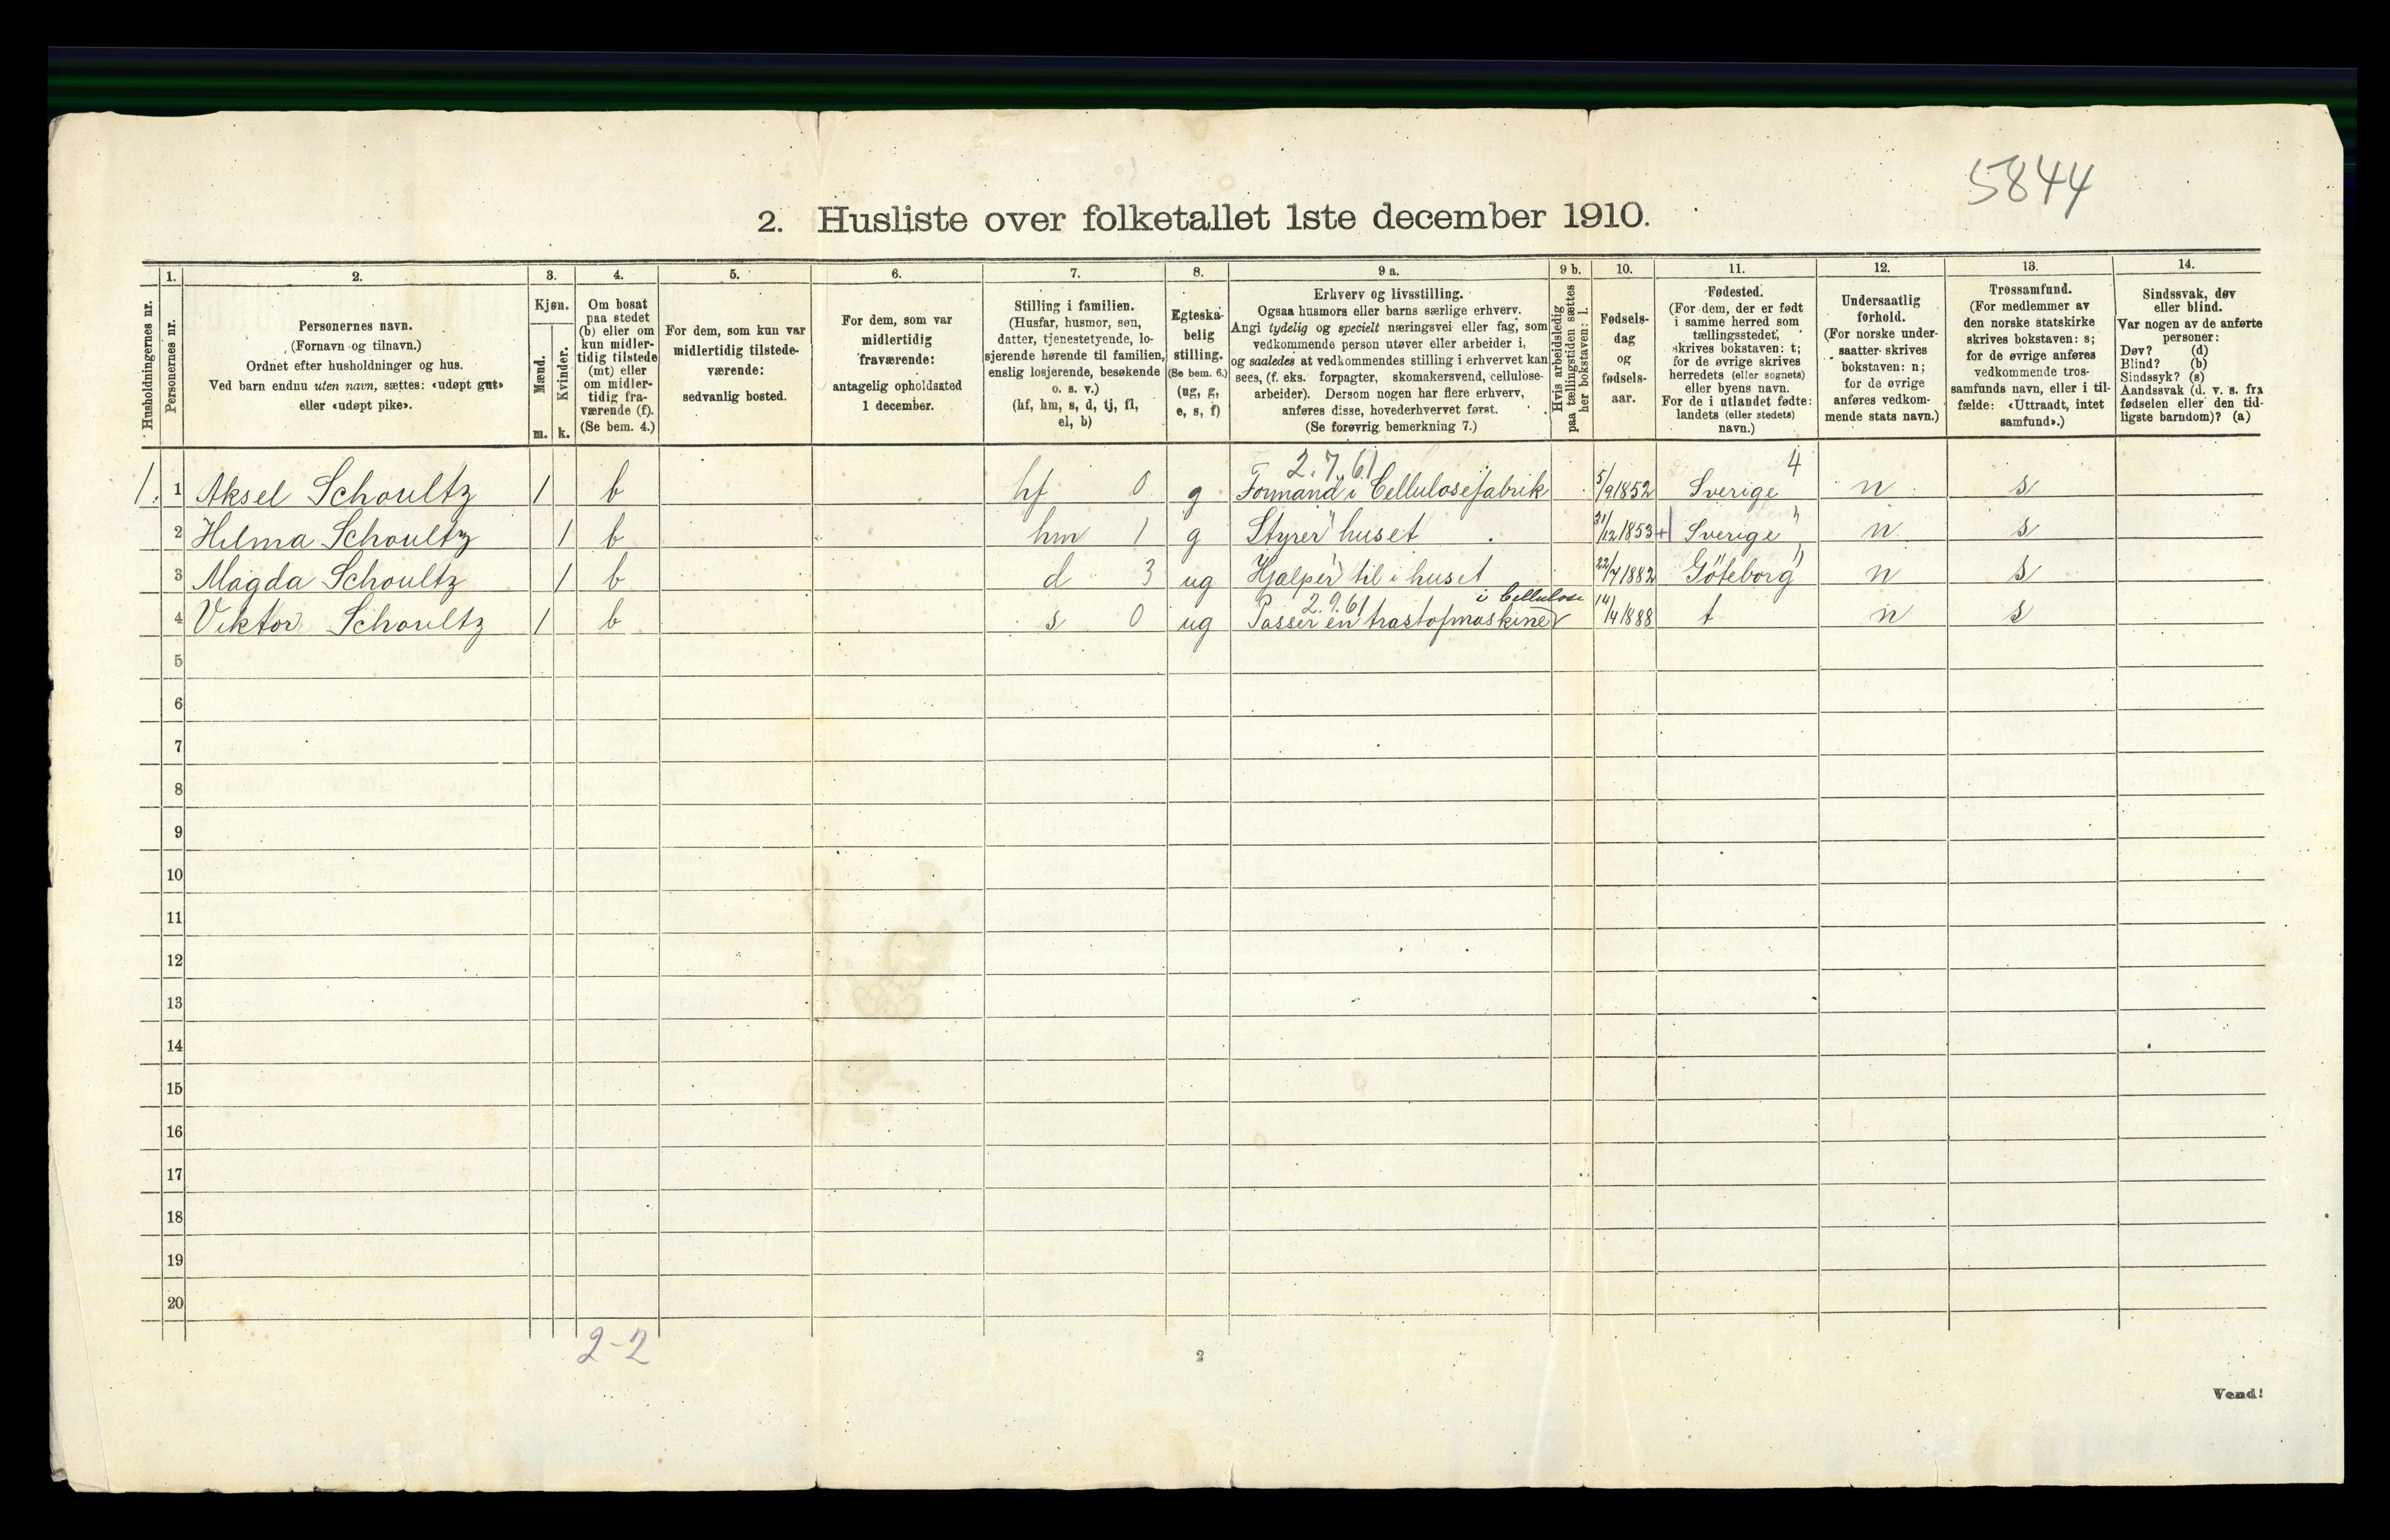 5844
2. Husliste over folketallet 1ste december 1910.
1. 2. 3. 4. 5. 6. 7. 8. 9 a. 9 b. 10. 11. 12. 13. 14.
Husholdningernes nr.
Personernes nr.
Personernes navn.
(Fornavn og tilnavn.)
Ordnet efter husholdninger og hus.
Ved barn endnu uten navn, sættes: «udøpt gut»
eller «udøpt pike».
Kjøn.
Mænd.
Kvinder.
m. k.
Om bosat
paa stedet
(b) eller om
kun midler-
tidig tilstede
(mt) eller
om midler-
tidig fra-
værende (f).
(Se bem. 4.)
For dem, som kun var
midlertidig tilstede-
værende:
sedvanlig bosted.
For dem, som var
midlertidig
fraværende:
antagelig opholdssted
1 december.
Stilling i familien.
(Husfar, husmor, søn,
datter, tjenestetyende, lo-
sjerende hørende til familien,
enslig losjerende, besøkende
o. s. v.)
(hf, hm, s, d, tj, fl,
el, b)
Egteska-
belig
stilling.
(Se bem. 6.)
(ug, g,
e, s, f)
Erhverv og livsstilling.
Ogsaa husmors eller barns særlige erhverv.
Angi tydelig og specielt næringsvei eller fag, som
vedkommende person utøver eller arbeider i,
og saaledes at vedkommendes stilling i erhvervet kan
sees, (f. eks. forpagter, skomakersvend, cellulose-
arbeider). Dersom nogen har flere erhverv,
anføres disse, hovederhvervet først.
(Se forøvrig bemerkning 7.)
Hvis arbeidsledig
paa tællingstiden sættes
her bokstaven: l.
Fødsels-
dag
og
fødsels-
aar.
Fødested.
(For dem, der er født
i samme herred som
tællingsstedet,
skrives bokstaven: t;
for de øvrige skrives
herredets (eller sognets)
eller byens navn.
For de i utlandet fødte:
landets (eller stedets)
navn.)
Undersaatlig
forhold.
(For norske under-
saatter skrives
bokstaven: n;
for de øvrige
anføres vedkom-
mende stats navn.)
Trossamfund.
(For medlemmer av
den norske statskirke
skrives bokstaven: s;
for de øvrige anføres
vedkommende tros-
samfunds navn, eller i til-
fælde: «Uttraadt, intet
samfund».)
Sindssvak, døv
eller blind.
Var nogen av de anførte
personer:
Døv? (d)
Blind? (b)
Sindssyk? (s)
Aandssvak (d. v. s. fra
fødselen eller den tid-
ligste barndom)? (a)
2.7.61 4
1. 1 Aksel Schoultz 1 b hf 0 g Formand i Cellulosefabrik 5/9 1852 Sverige n s
2 Hilma Schoultz 1 b hm 1 g Styrer huset 31/12 1853 Sverige " n s
3 Magda Schoultz 1 b d 3 ug Hjælper til i huset 22/7 1882 Göteborg " n s
2.9.61 i Cellulose
4 Viktor Schoultz 1 b s 0 ug Passer en trastofmaskine 14/4 1888 t n s
5
6
7
8
9
10
11
12
13
14
15
16
17
18
19
20
2-2
2
Vend!